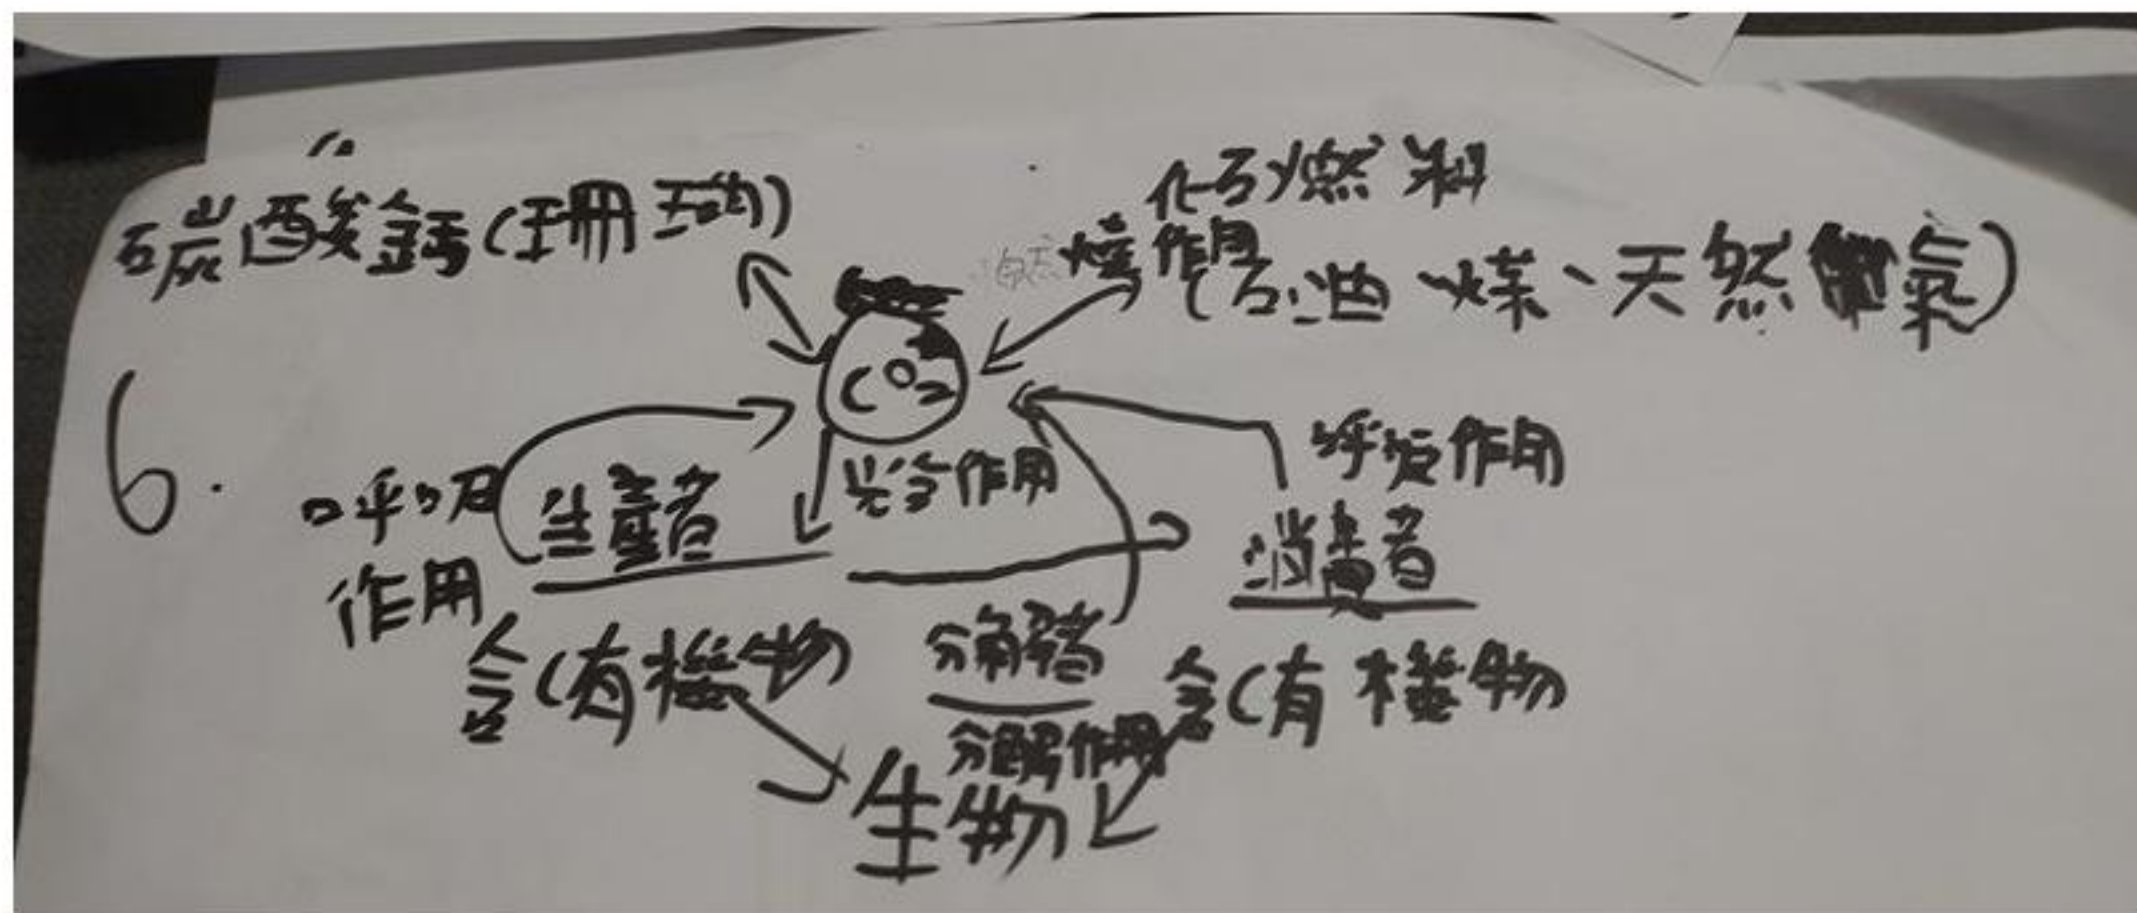 碳酸鈣(珊瑚)
化石燃料
燃燒作用
(石油 煤、天然氣)
CO2
6.
呼吸
作用
生產者
光合作用
呼吸作用
消費者
含(有機物)
分解者
含(有機物)
分解作用
生物